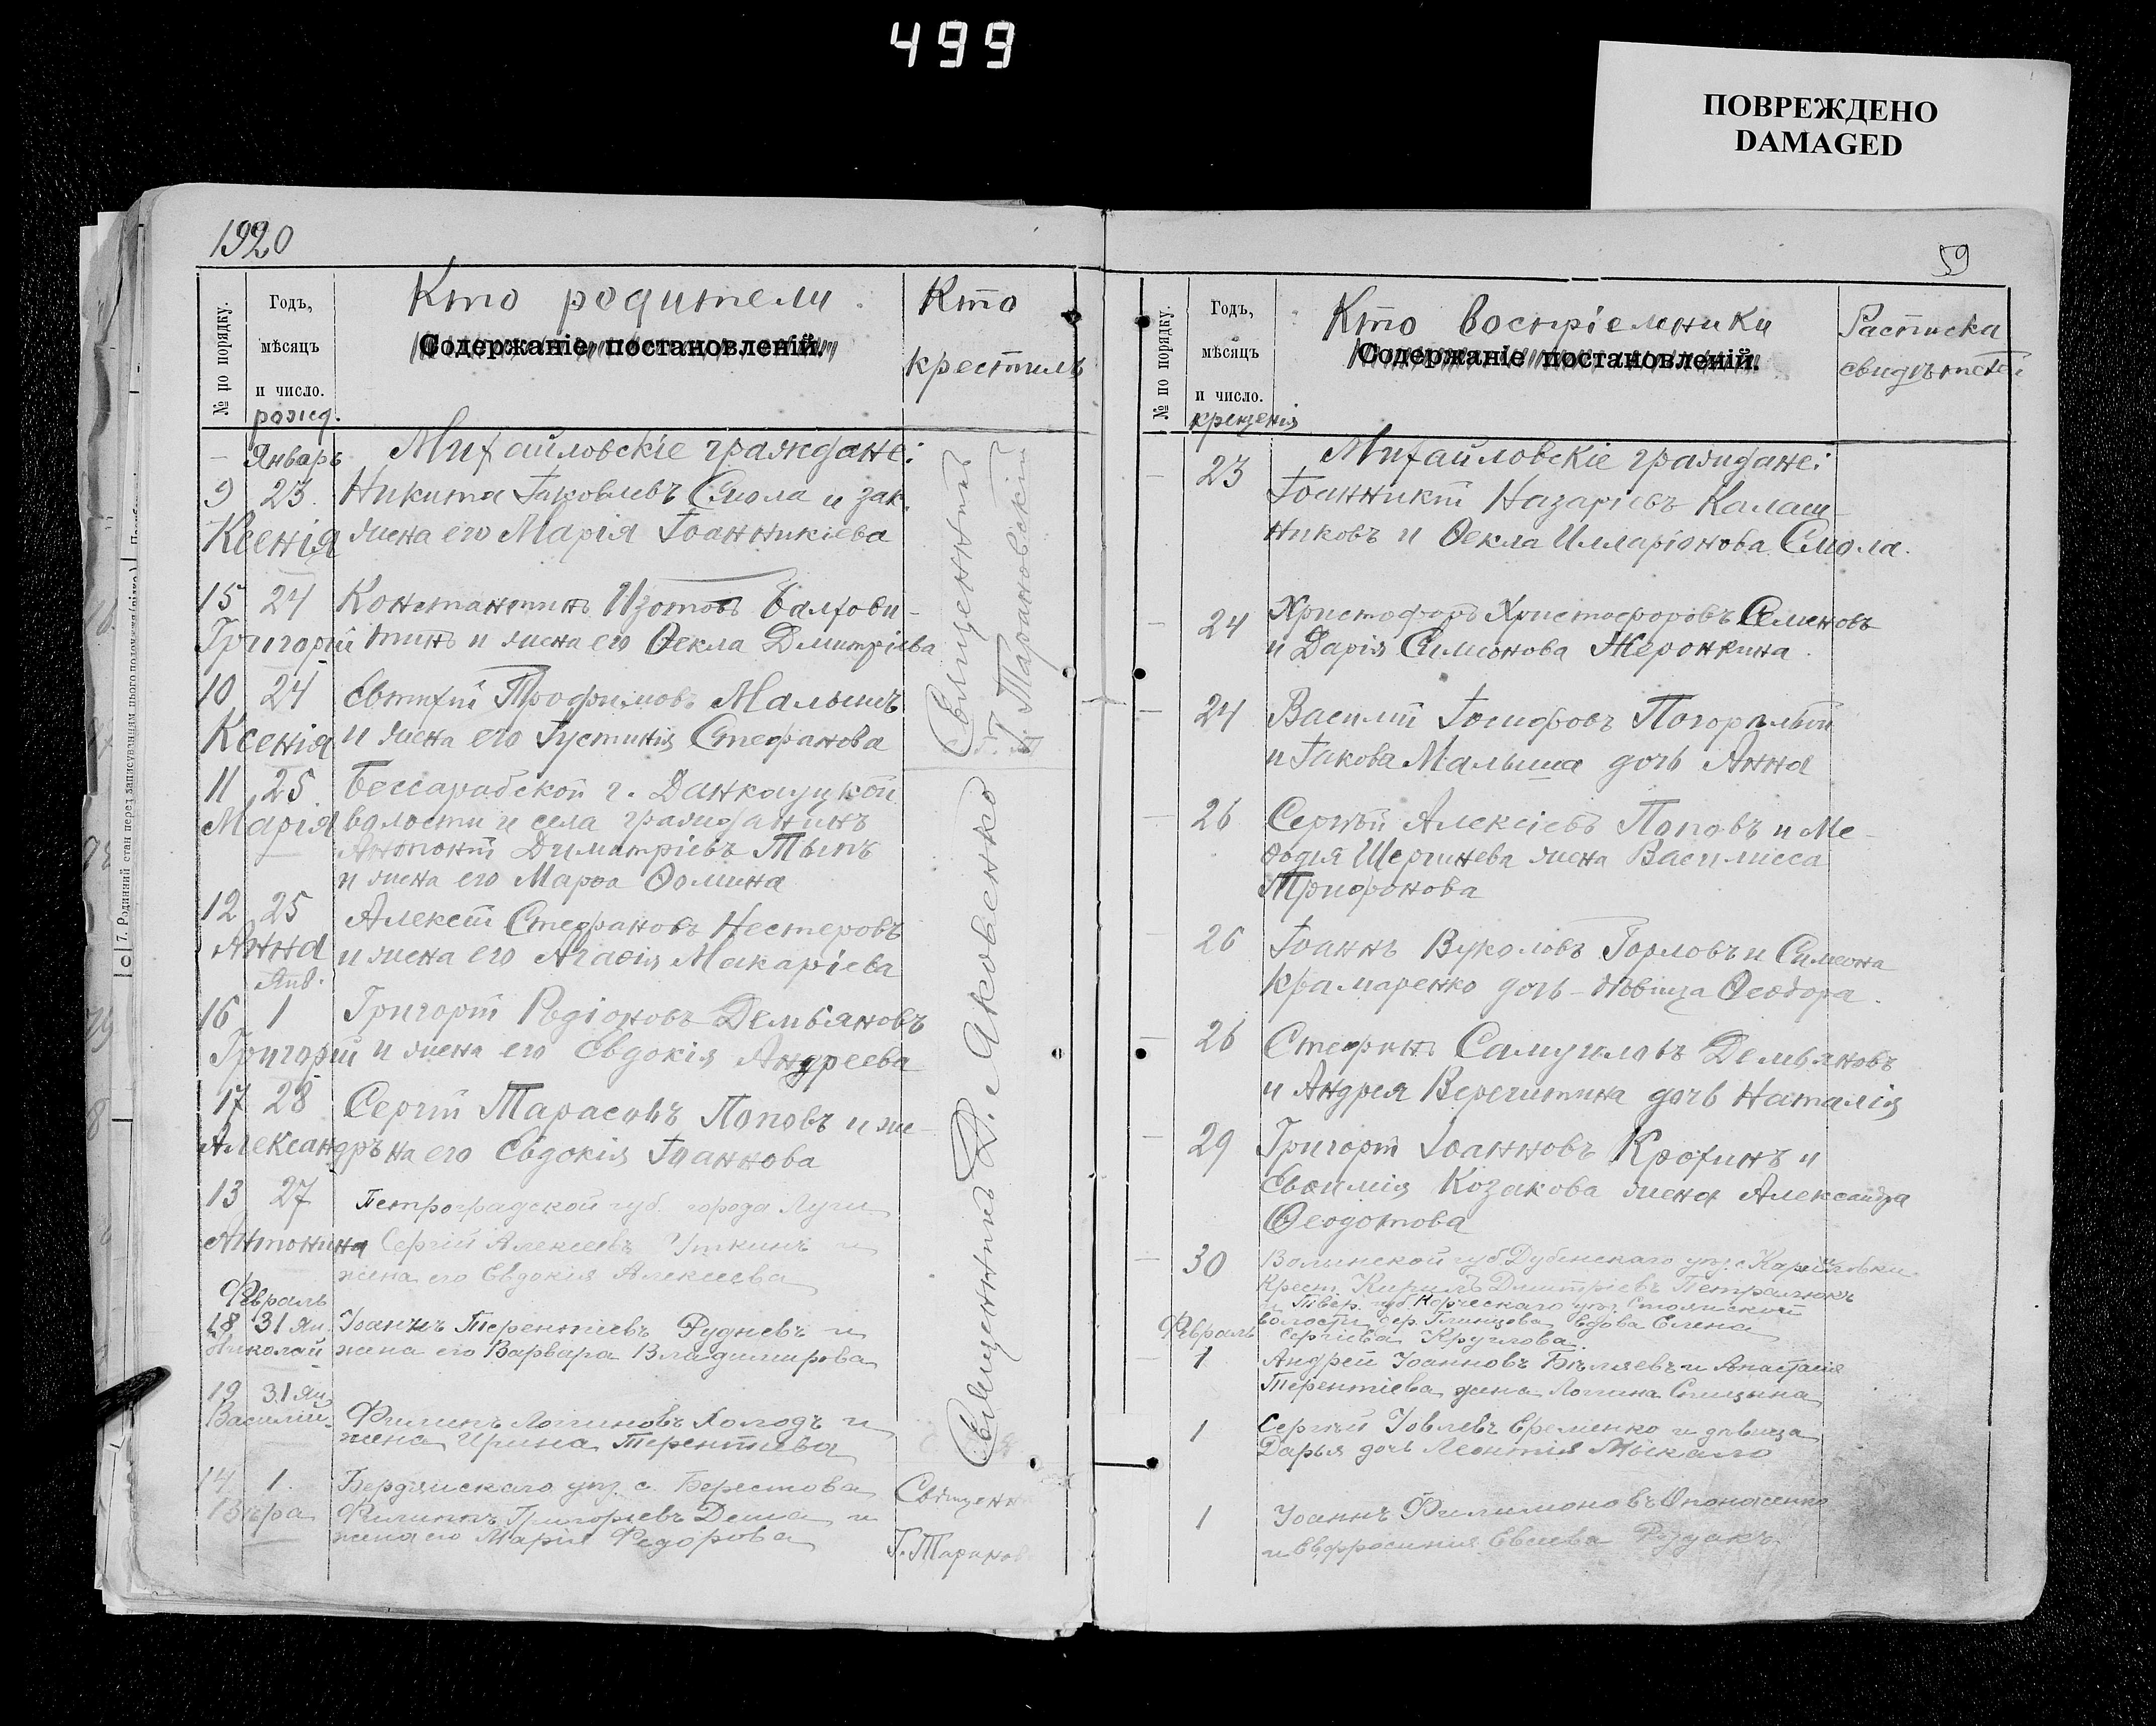 499
ПОВРЕЖДЕНО
DAMAGED
1920
№ по порядку.
Годъ,
мѣсяцъ
и число.
рожд.
Кто родители.
Содержаніе постановленій.
Кто
крестилъ
Январь
Михайловскіе граждане:
9 23 Никита Іаковлевъ Смола и зак.
Ксенія жена его Марія Іоанникіева
15 24 Константинъ Изотовъ
Григорій и жена его Ѳекла Дмитріева
10 24 Евтихій Трофимовъ Малышъ
Ксенія и жена его Іустинія Стефанова
11 25 Бессарабской г.
Марія волости и села гражданинъ
Димитріевъ
и жена его Марѳа Ѳомина
12 25 Алексѣй Стефановъ Нестеровъ
Анна и жена его Агаѳія Макаріева
Янв.
16 1 Григорій Родіоновъ Демьяновъ
Григорій и жена его Евдокія Андреева
17 28 Сергій Тарасовъ Поповъ и же-
Александръ на его Евдокія Іоаннова
13 27 Петроградской губ. города Луги
Антонина Сергій Алексеевъ и
жена его Евдокія Алексеева
Февраль
18 31 Ян. Іоаннъ Терентіевъ Рудневъ и
Николай жена его Варвара Владимирова
19 31 Ян.
Василій Филипъ Логиновъ Холодъ и
жена Ирина Терентіева
14 1. Бердянскаго уѣз. с. Берестова
Вѣра Филиппъ Григорьевъ Деша и
жена его Марія Федорова
Священникъ
Г. Тарановскій
Священникъ Д. Яковенко
Священн
Г. Таранов
59
№ по порядку.
Годъ,
мѣсяцъ
и число.
крещенія
Кто воспріемники
Содержаніе постановленій.
Расписка
свидѣтелей
Михайловскіе граждане:
23 Іоанникій Назаріевъ Калаш-
никовъ и Ѳекла Илларіонова Смола.
24 Христофоръ Христофоровъ Семеновъ
и Дарія Симонова Жеронкина.
24 Василій Іосифовъ Погорѣлый
и Іакова Малыша дочь Анна
26 Сергѣй Алексіевъ Поповъ и Ме-
ѳодія жена Василисса
Трифонова
26 Іоаннъ Вуколовъ Горловъ и Симеона
Крамаренко дочь - дѣвица Ѳеодора.
26 Стефанъ Самуиловъ Демьяновъ
и Андрея дочь Наталія
29 Григорій Іоанновъ Крохинъ и
Евѳимія Козакова жена Александра
Ѳеодотова
30 Волынской губ. Дубенскаго уѣз. с.
Крест. Кирилъ Дмитріевъ Петралюкъ
и Твер. губ. Корческаго уѣз.
волости дер. вдова Елена
Сергіева Круглова.
Февраль
1 Андрей Іоанновъ Бѣляевъ и Анастасія
Терентіева жена Логина Спицына
1 Сергѣй Іовлевъ Еременко и дѣвица
Дарья дочь Леонтія Мыскало
1 Іоаннъ Филимоновъ Опонасенко
и Евфросинія Евсіева Рудакъ.